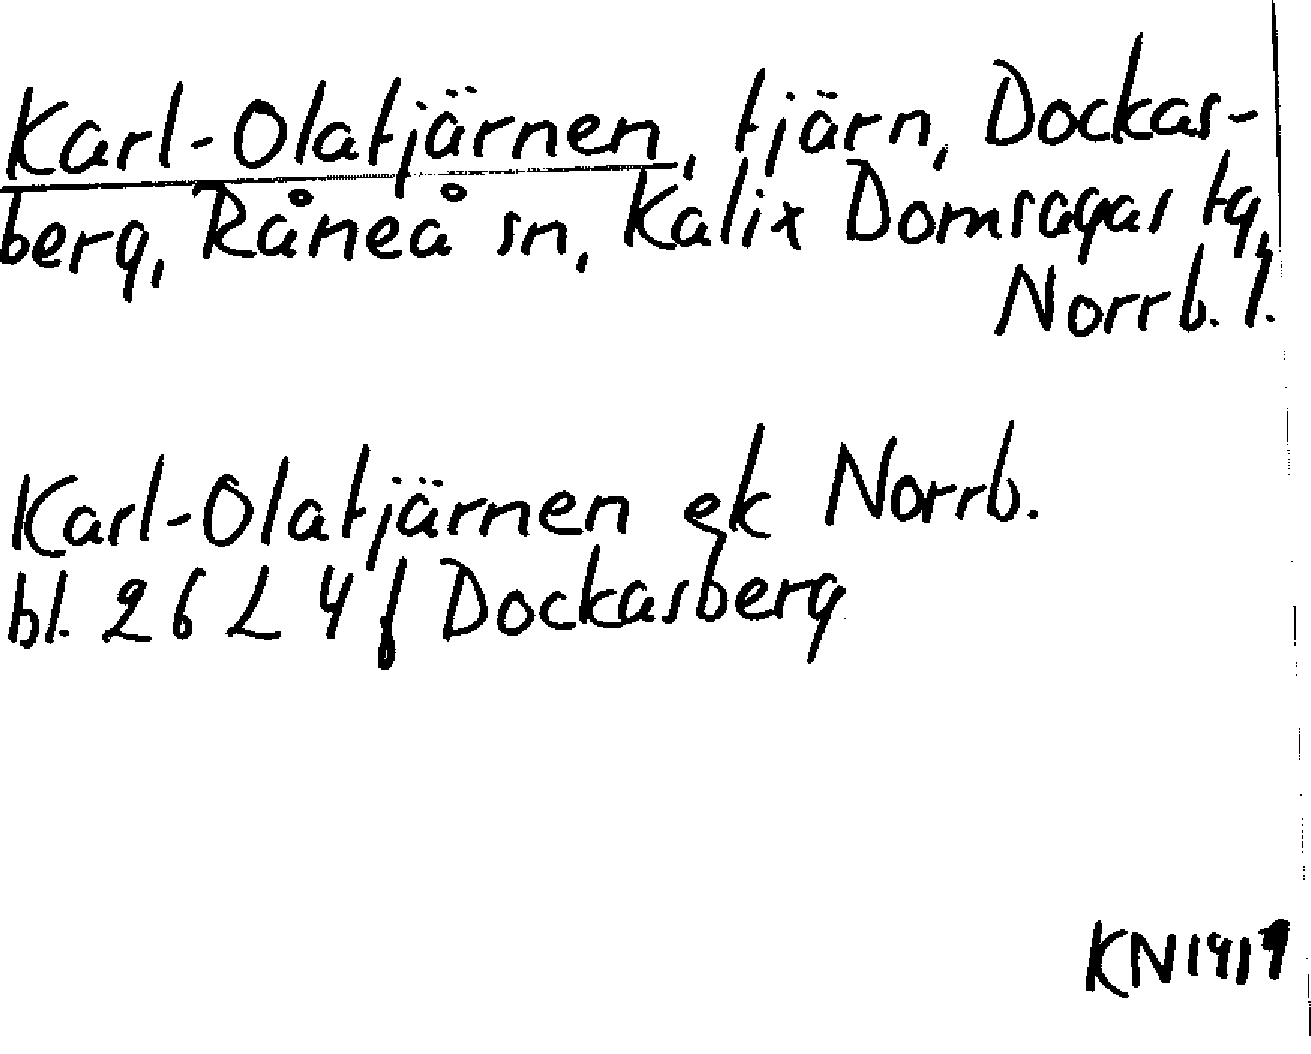 Karl-Olatjärnen, tjärn, Dockas-
berg, Råneå sn, Kalix Domsagas tg,
Norrb. l.
Karl-Olatjärnen ek Norrb.
bl. 26 L 4 f Dockasberg
KN1919